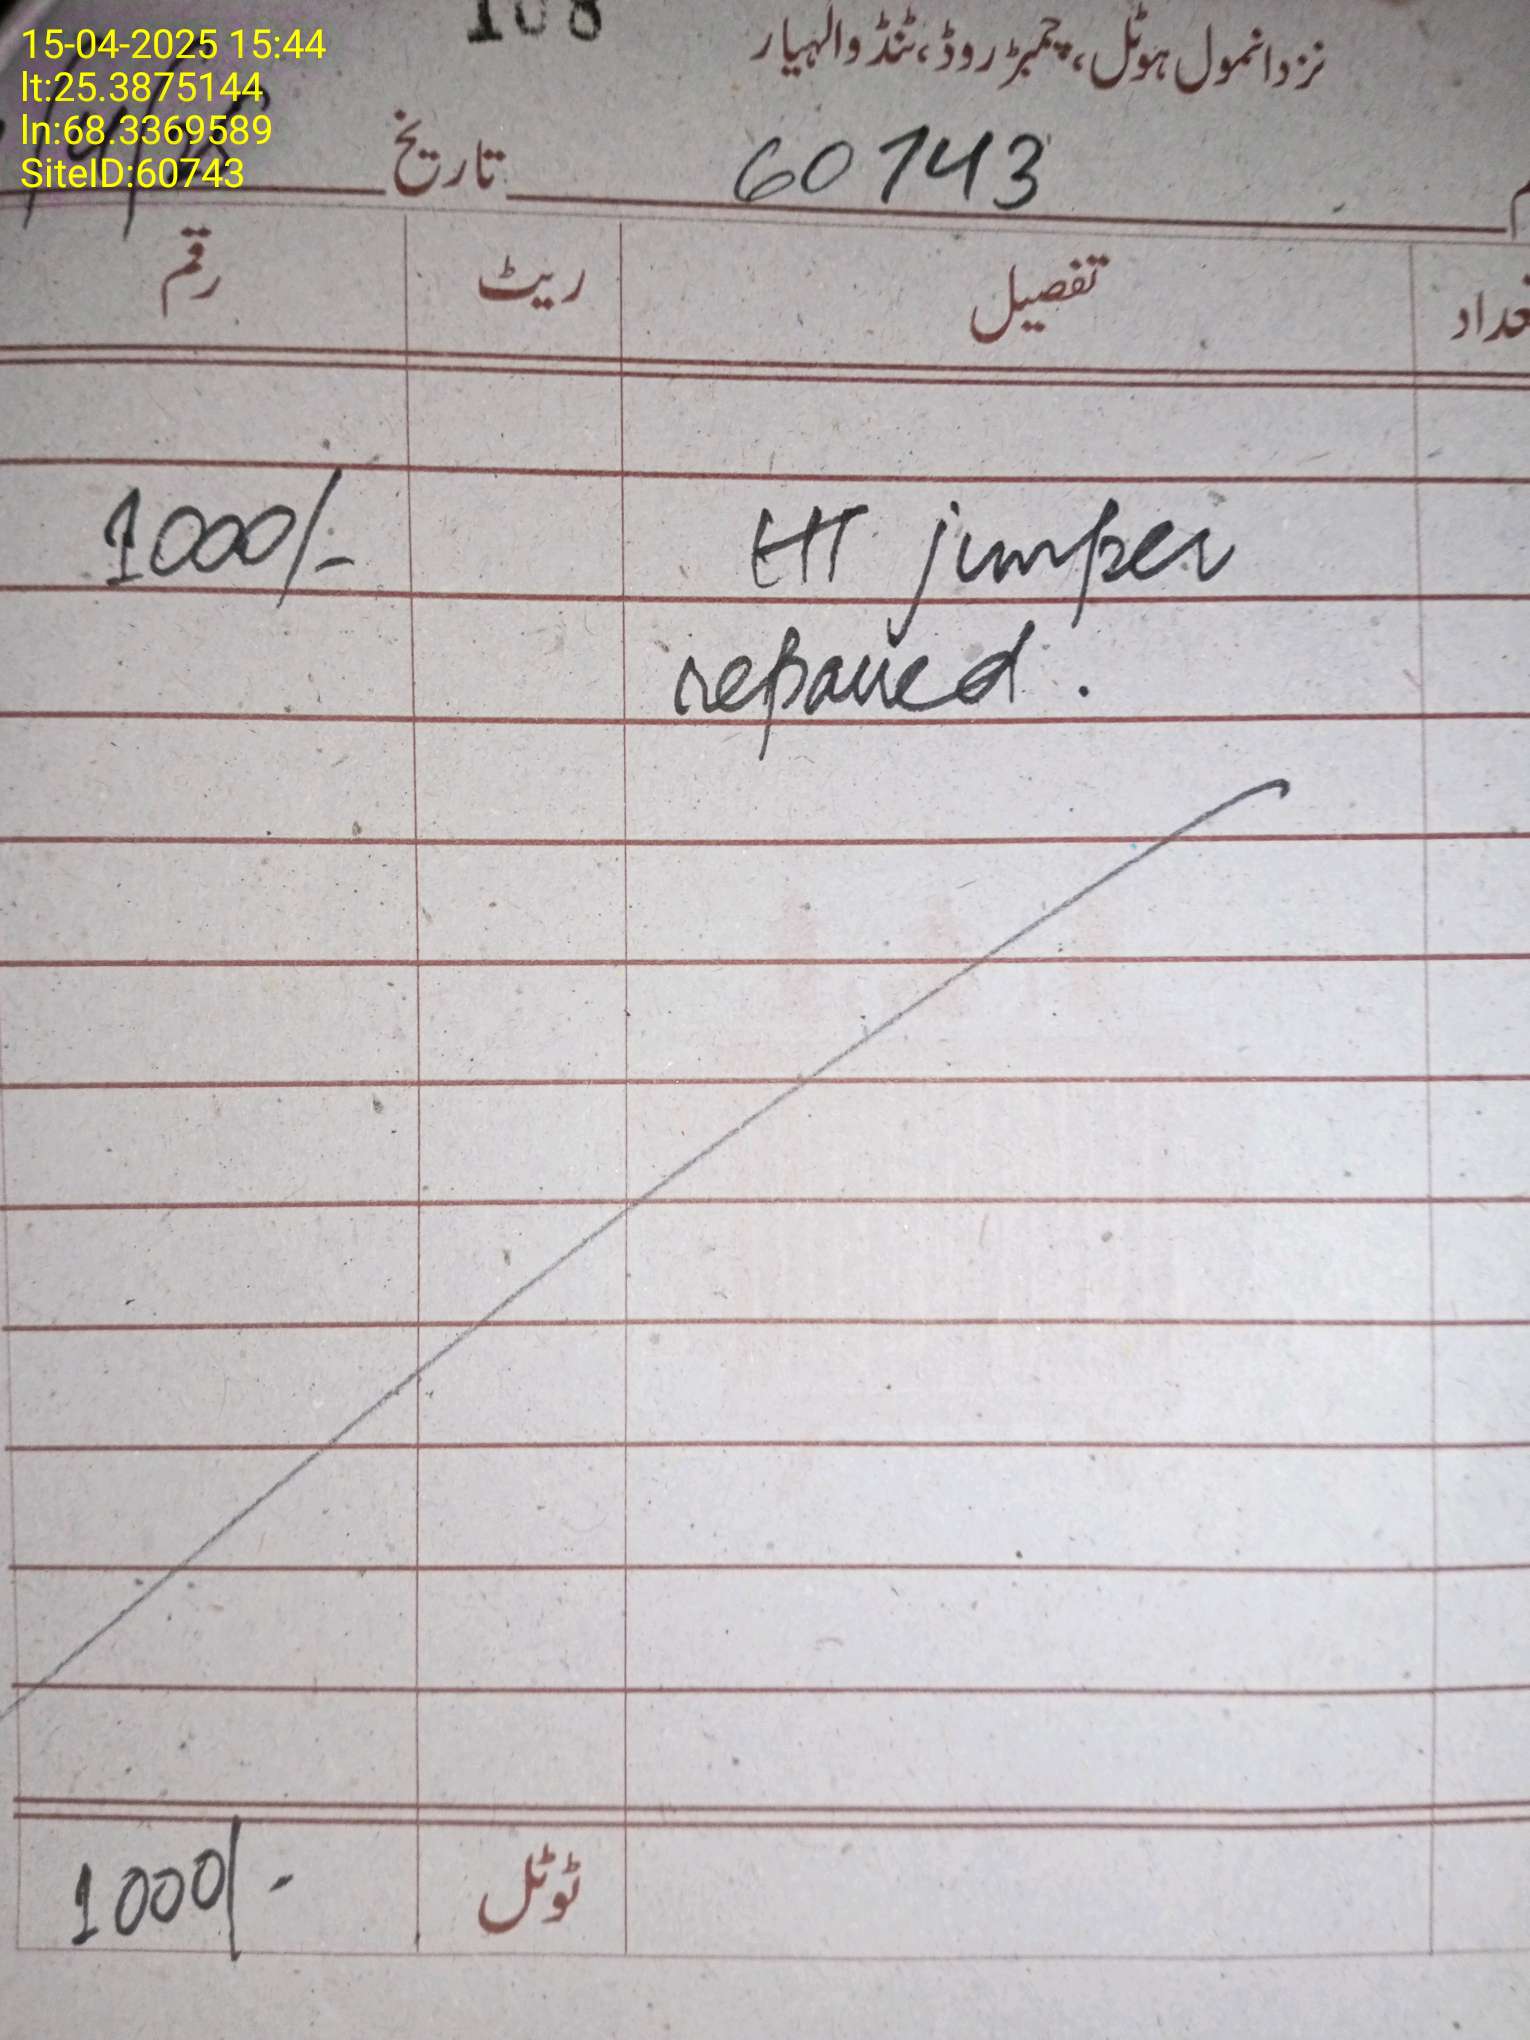 15-04-2025 15:44
lt:25.3875144
ln:68.3369589
SiteID:60743
108
نزد انمول ہوٹل، چمبڑ روڈ، ٹنڈوالہیار
60743 تاریخ
تفصیل ریٹ رقم
HT jumper 1000/-
repaired.
ٹوٹل 1000/-